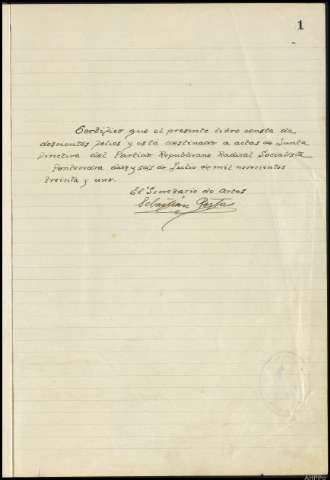 1
Certifico que el presente libro consta de
doscientos folios y está destinado a actas de Junta
Directiva del Partido Republicano Radical Socialista
Pontevedra diez y seis de Julio de mil novecientos
treinta y uno.
El Secretario de Actas
Sebastián
AHPPO